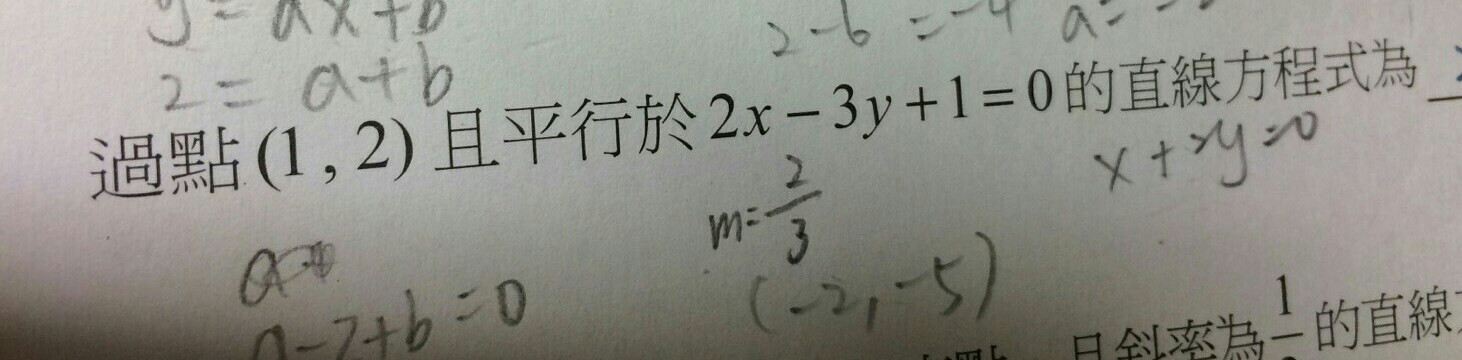 y = ax+b
2-6 = -4 a=
2 = a+b
過點(1,2)且平行於2x-3y+1=0的直線方程式為
x+2y=0
m=2/3
a
(-2,-5)
a-7+b=0
且斜率為1 的直線